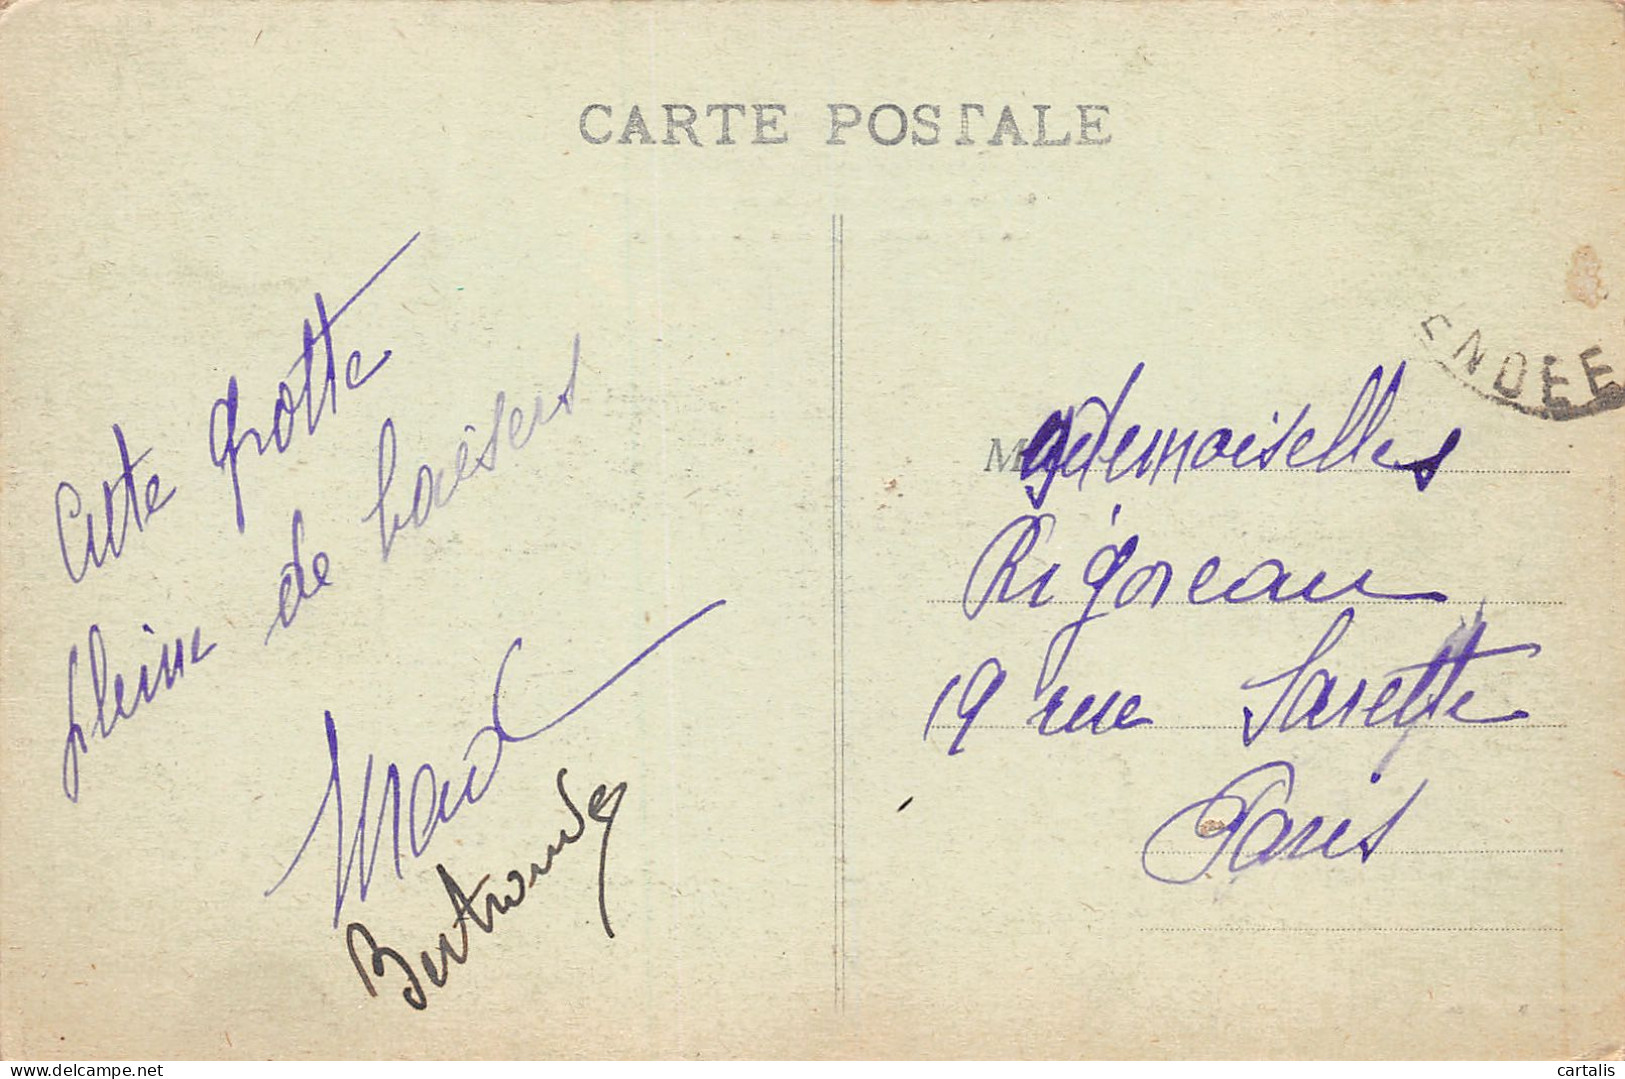 CARTE POSTALE
Cette grotte
pleine de baisers
Maud
Bertrande
ENDEE
Mademoiselles
Rigoreau
19 rue Sarette
Paris
delcampe.net
cartalis